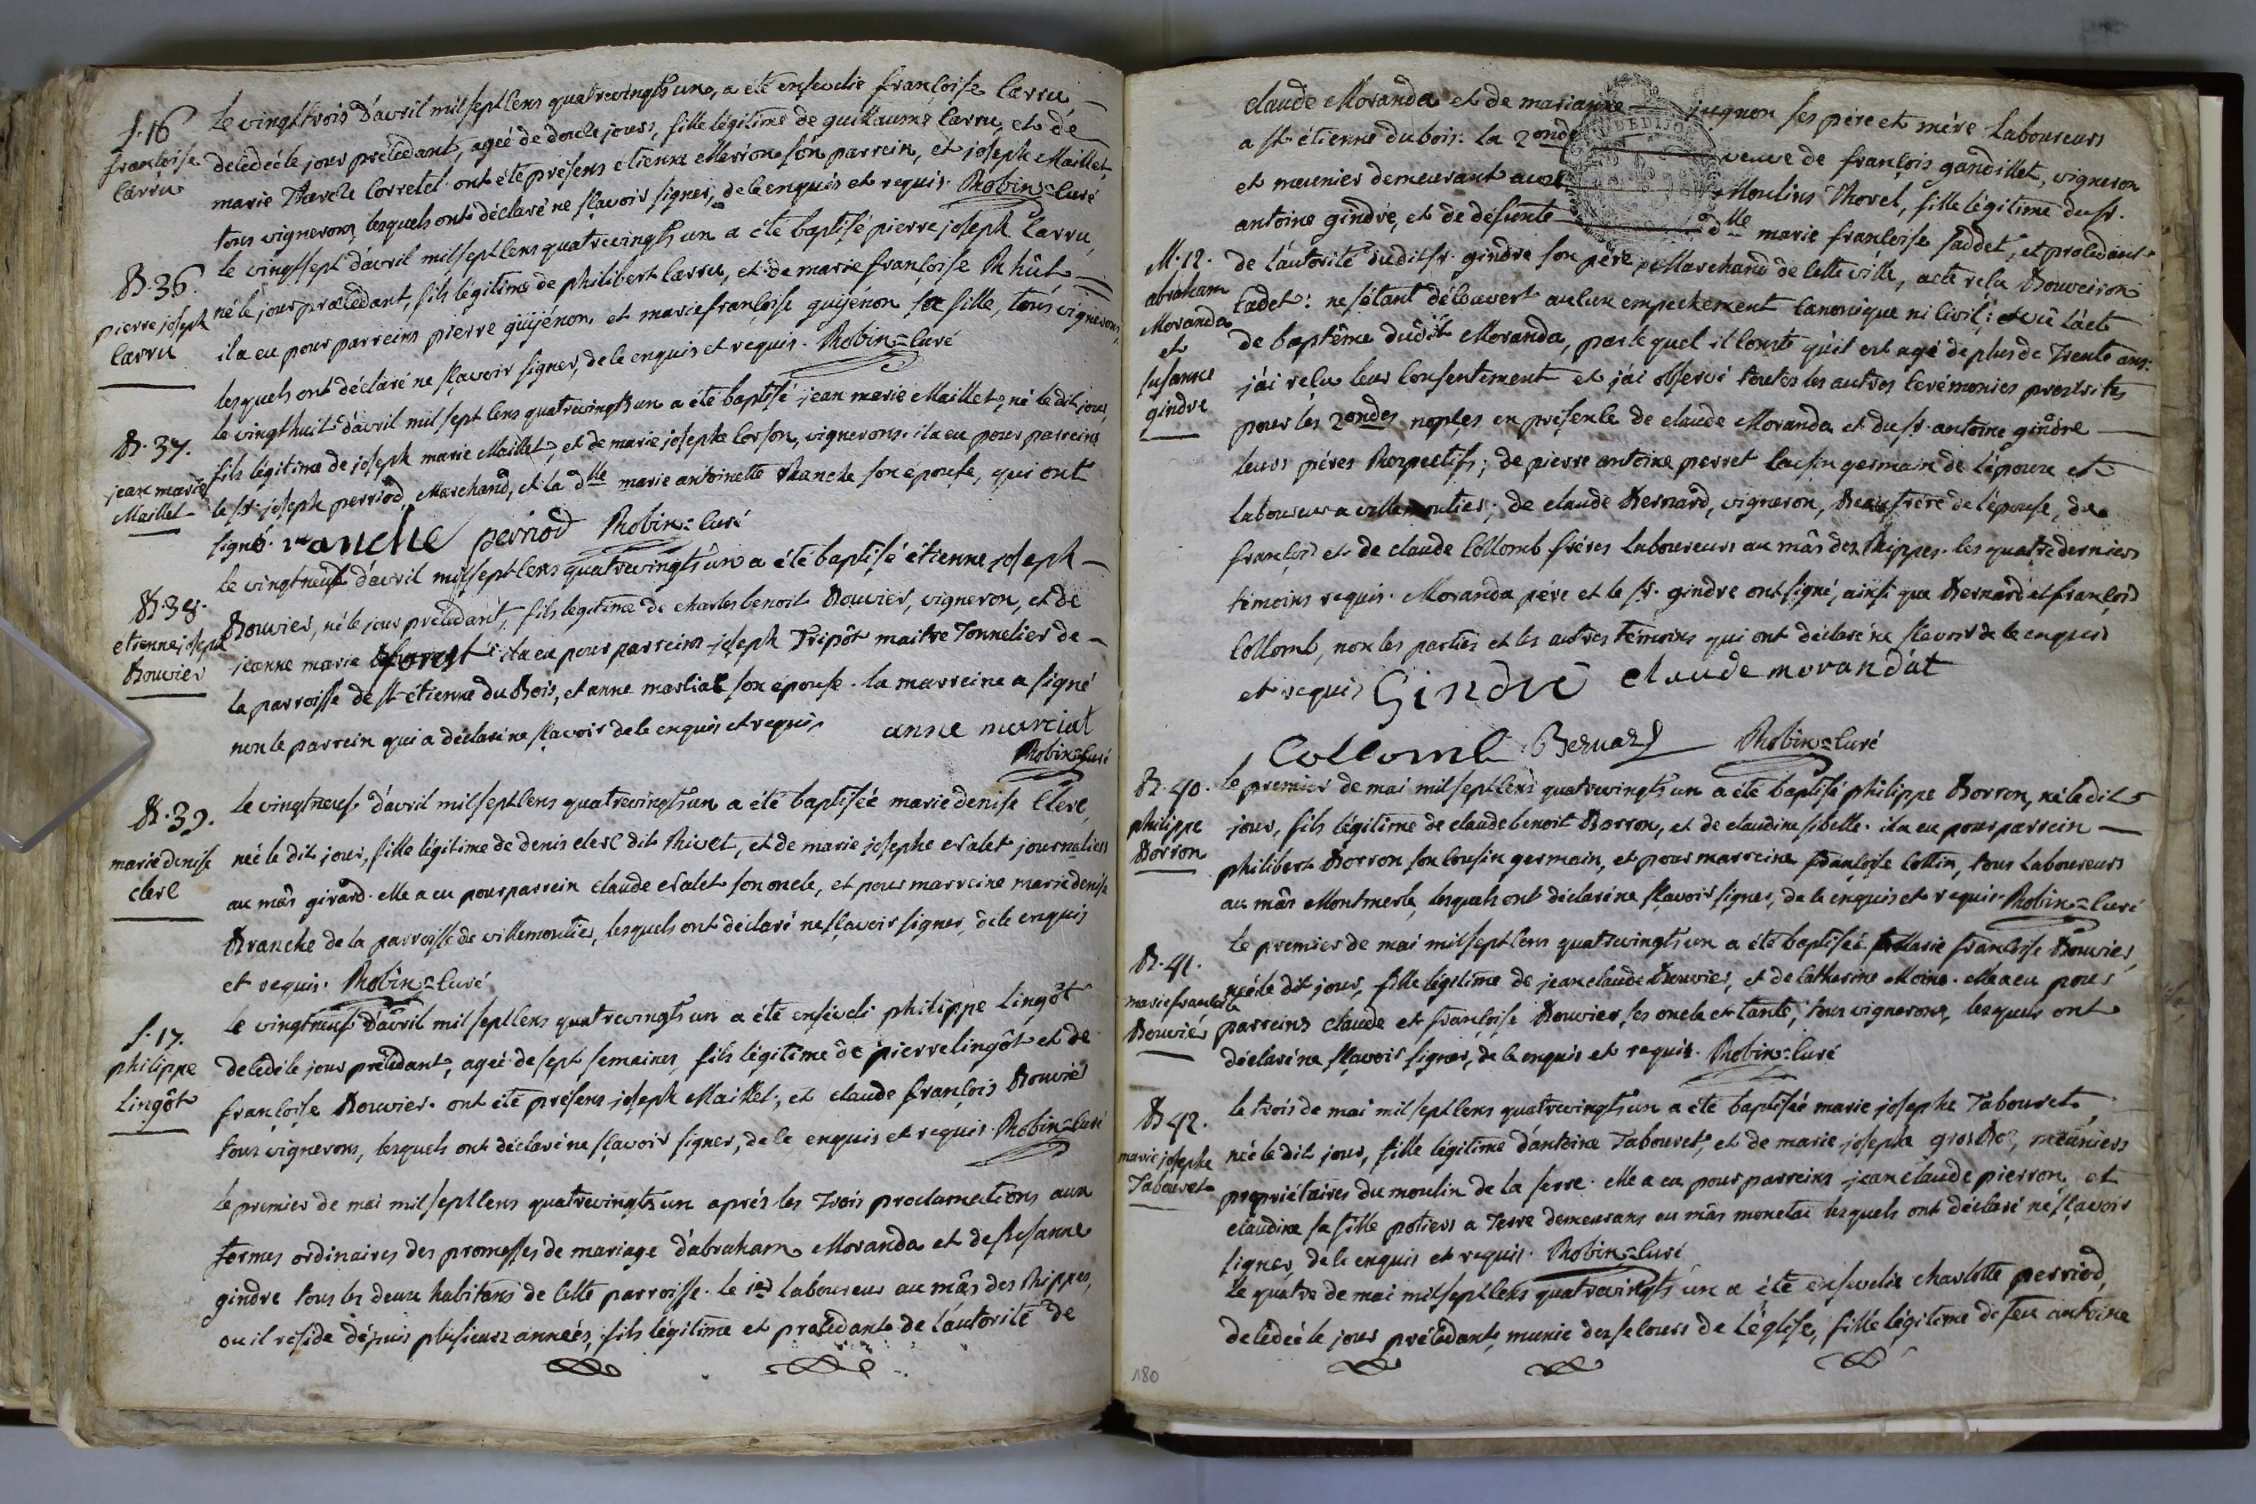 S. 16
françoise
Carru
Le vingttrois d'avril mil sept cens quatrevingts un, a été ensevelie françoise Carru
décédée le jour précédant, agée de douze jours, fille légitime de guillaume Carru, et de
marie Thereze Corretel. ont été présens etienne Merion son parrein, et joseph Maillet
tous vignerons, lesquels ont déclaré ne sçavoir signer, de ce enquis et requis. Robin = Curé
B. 36.
pierre joseph
Carru
le vingtsept d'avril mil sept cens quatrevingts un a été baptisé pierre joseph Carru,
né le jour précédant, fils légitime de philibert Carru, et de marie françoise Rhût
il a eu pour parreins pierre guijénon et marie françoise guijénon sa fille, tous vignerons,
lesquels ont déclaré ne sçavoir signer, de ce enquis et requis. Robin = Curé
B. 37.
jean marie
Maillet
le vingthuit d'avril mil sept cens quatrevingts un a été baptisé jean marie Maillet, né le dit jour,
fils légitime de joseph marie Maillet, et de marie josephe Corson, vignerons. il a eu pour parreins
le sr. joseph perriod, Marchand, et la dlle marie antoinette Ranche son epouse, qui ont
signé. ranche perriod Robin = Curé
B. 38.
etienne joseph
Bouvier
le vingtneuf d'avril mil sept cens quatrevingts un a été baptisé étienne joseph
Bouvier, né le jour précédant, fils légitime de charles benoit Bouvier, vigneron, et de
jeanne marie forest. il a eu pour parreins joseph Tripôt maitre Tonnelier de
la parroisse de st étienne du Bois, et anne martial son epouse. la marreine a signé
non le parrein qui a déclaré ne sçavoir de ce enquis et requis anne marciat
Robin = Curé
B. 39.
marie denise
clerc
le vingtneuf d'avril mil sept cens quatrevingts un a été baptisée marie denise Clerc,
née le dit jour, fille légitime de denis clerc dit Rivet, et de marie josephe valet journaliers
au mâs girard. elle a eu pour parrein claude valet son oncle, et pour marreine marie denise
Branche de la parroisse de villemoutier, lesquels ont déclaré ne sçavoir signer, de ce enquis
et requis. Robin = Curé
S. 17.
philippe
Lingôt
le vingtneuf d'avril mil sept cens quatrevingts un a été enséveli philippe Lingôt
décédé le jour précédant, agé de sept semaines, fils légitime de pierre lingôt et de
françoise Bouvier. ont été présens joseph Maillet, et claude françois Bouvier
tous vignerons, lesquels ont déclaré ne sçavoir signer, de ce enquis et requis. Robin = Curé
le premier de mai mil sept cens quatrevingts un après les trois proclamations aux
formes ordinaires des promesses de mariage d'abraham Moranda et de Susanne
gindre tous les deux habitans de cette parroisse. le 1er laboureur au mâs des Rippes,
ou il réside depuis plusieurs années, fils légitime et procédant de l'autorité de
claude Moranda et de marianne jugnon ses père et mère Laboureurs
a st étienne du bois. la 2onde veuve de françois gandillet, vigneron
et meunier demeurant aux Moulins Thorel, fille légitime du sr.
antoine gindre, et de défunte dlle marie françoise saddet, et procédant
M. 12.
abraham
Moranda
et
susanne
gindre
de l'autorité du dit sr. gindre son père Marchand de cette ville, acte reçu Bouveiron
Cadet: ne s'étant découvert aucun empechement canonique ni civil; et vû l'acte
de baptême dudit Moranda, par lequel il conste qu'il est agé de plus de trente ans:
j'ai reçu leur consentement et j'ai observé toutes les autres cerémonies prescrites
pour les 2ondes noptes en présence de claude Moranda et du sr. antoine gindre
leurs pères Respectifs; de pierre antoine perret cousin germain de l'époux et
laboureur a villemoutier; de claude Bernard, vigneron, Beaufrère de l'épouse, de
françois et de claude Collomb frères laboureurs au mâs des Rippes. les quatre derniers
témoins requis. Moranda père et le sr. gindre ont signé, ainsi que Bernard et françois
Collomb, non les parties et les autres témoins qui ont déclaré ne sçavoir de ce enquis
et requis Gindre claude morandat
Collomb Bernard Robin = Curé
B. 40.
philippe
Borron
le premier de mai mil sept cens quatrevingts un a été baptisé philippe Borron, né le dit
jour, fils légitime de claude benoit Borron, et de claudine sibelle. il a eu pour parrein
philibert Borron son cousin germain, et pour marreine françoise Collin, tous laboureurs
au mâs Montmerle, lesquels ont déclaré ne sçavoir signer, de ce enquis et requis. Robin = Curé
B. 41.
marie françoise
Bouvier
le premier de mai mil sept cens quatrevingts un a été baptisée Marie françoise Bouvier,
née le dit jour, fille légitime de jean claude Bouvier, et de Catherine Moine. elle a eu pour
parreins claude et françoise Bouvier, ses oncle et tante, tous vignerons, lesquels ont
déclaré ne sçavoir signer, de ce enquis et requis. Robin = Curé
B. 42.
marie josephe
Tabouret
le trois de mai mil sept cens quatrevingts un a été baptisée marie josephe Tabouret,
née le dit jour, fille légitime d'antoine Tabouret, et de marie josephe gros, meûniers
propriétaires du moulin de la serre. elle a eu pour parreins jean claude pierron, et
claudine sa fille potiers a terre demeurans au mâs monetai lesquels ont déclaré ne sçavoir
signer, de ce enquis et requis. Robin = Curé
Le quatre de mai mil sept cens quatrevingts un a été ensevelie charlotte perriod,
décédée le jour précédant, munie des secours de l'église, fille légitime de feu antoine
180